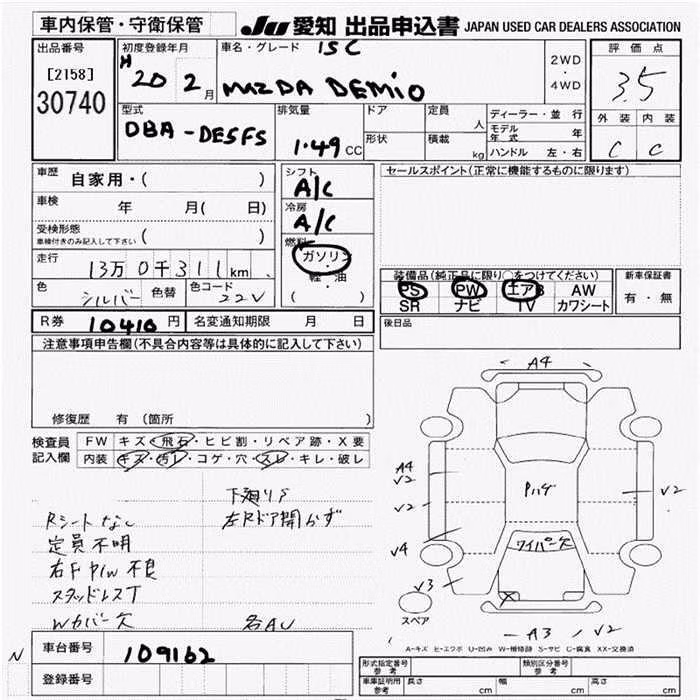 車内保管・守衛保管
JU 愛知 出品申込書 JAPAN USED CAR DEALERS ASSOCIATION
出品番号
[2158]
30740
初度登録年月
H 20 2月
車名・グレード 15C
MAZDA DEMIO
2WD
・
4WD
評価点
3.5
外装 内装
C C
型式
DBA-DE5FS
排気量
1.49 CC
ドア
形状
定員 人
積載 kg
ディーラー・並 行
モデル年式 年
ハンドル 左・右
車歴 自家用・( )
車検 年 月( 日)
受検形態
車検付きのみ記入して下さい ( )
走行
13万0千311km
色 シルバー
色替
色コード 22V
シフト
A/C
冷房
A/C
燃料
ガソリン
・
軽・油
( )
セールスポイント(正常に機能するものに限ります)
装備品(純正品に限り○をつけてください)
PS PW エアB AW
SR ナビ TV カワシート
新車保証書
有・無
R券 10410円 名変通知期限 月 日
後日品
注意事項申告欄(不具合内容等は具体的に記入して下さい)
修復歴 有 (箇所 )
検査員記入欄
FW キズ・飛石・ヒビ割・リペア跡・X要
内装 キズ・汚レ・コゲ・穴・スレ・キレ・破レ
下廻りS
Rシートなし 左Rドア開かず
定員不明
右F P/W 不良
スタッドレスT
Wカバー欠
各AU
A4
A4
V2
V2
V4
V3
Pハゲ
ワイパー欠
V2
V2
X
スペア
A3 V2
A-キズ E-エクボ U-凹み W-補修跡 S-サビ C-腐食 XX-交換済
N
車台番号 109162
登録番号
形式指定番号
参考
類別区分番号
参考
車庫証明用
参考
長さ cm 幅 cm 高さ cm